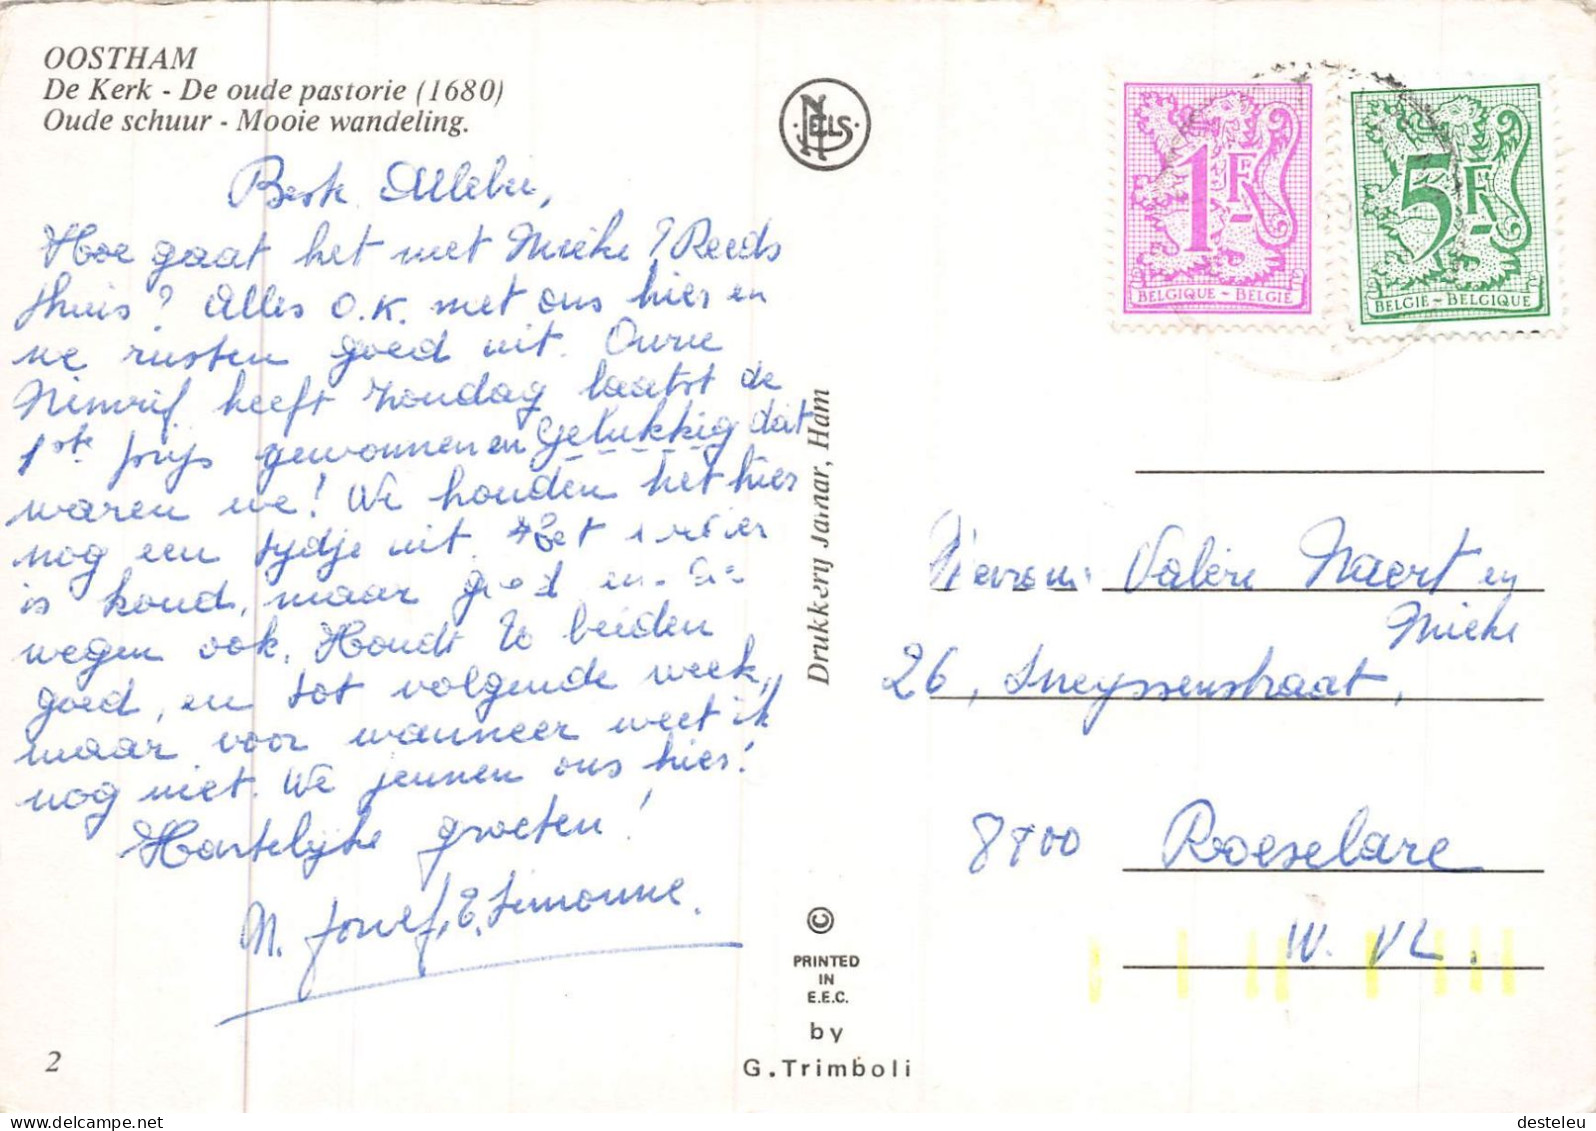 OOSTHAM
De Kerk - De oude pastorie (1680)
Oude schuur - Mooie wandeling.
Beste
Hoe gaat het met Mieke? Reeds
thuis? Alles O.K. met ons hier en
we rusten goed uit.
heeft zondag laatst de
1ste prijs gewonnen en gelukkig dat
waren we! We houden het hier
nog een tijdje uit. Het
is koud, maar goed
wegen ook. Houdt U beiden
goed, en tot volgende week,
maar voor wanneer weet ik
nog niet. We jeunen ons hier!
Hartelijke groeten!
M. Jozef, Z. Simonne.
2
NELS
Drukkerij Jamar, Ham
©
PRINTED
IN
E.E.C.
by
G. Trimboli
1F
BELGIQUE - BELGIË
5F
BELGIË - BELGIQUE
Valère Naert en
Mieke
26, Sneyssenstraat,
8800 Roeselare
W. VL.
desteleu